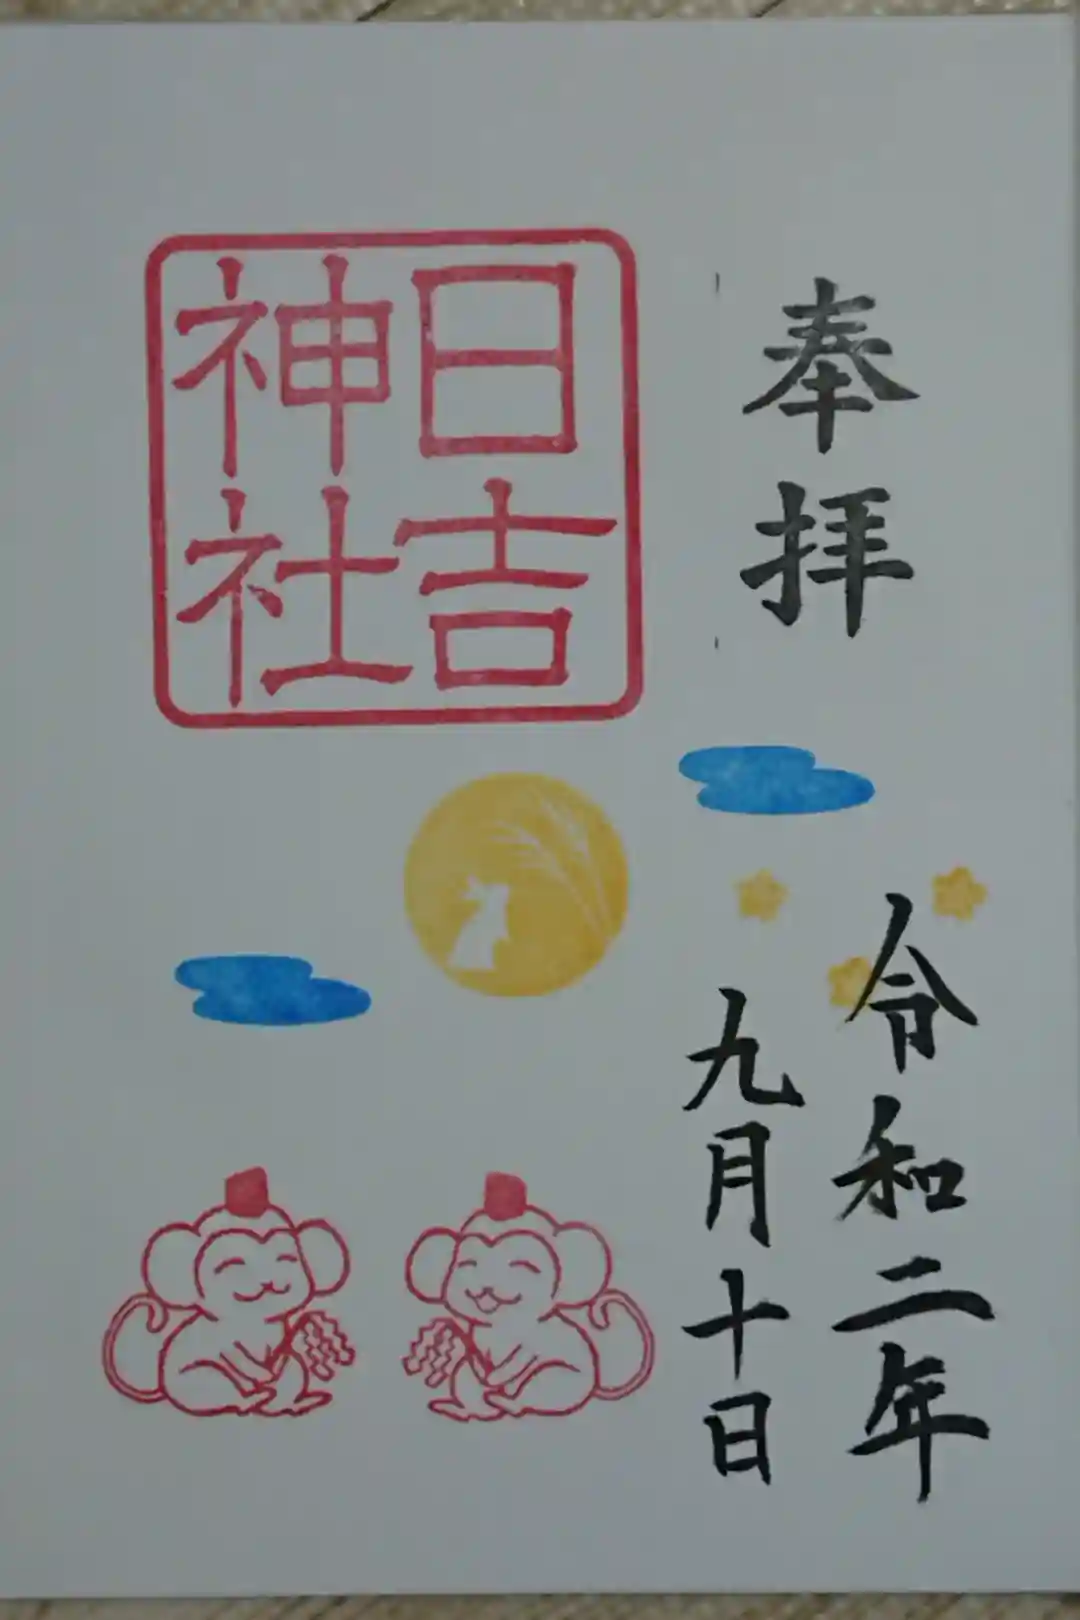 奉拝
日吉
神社
令和二年
九月十日